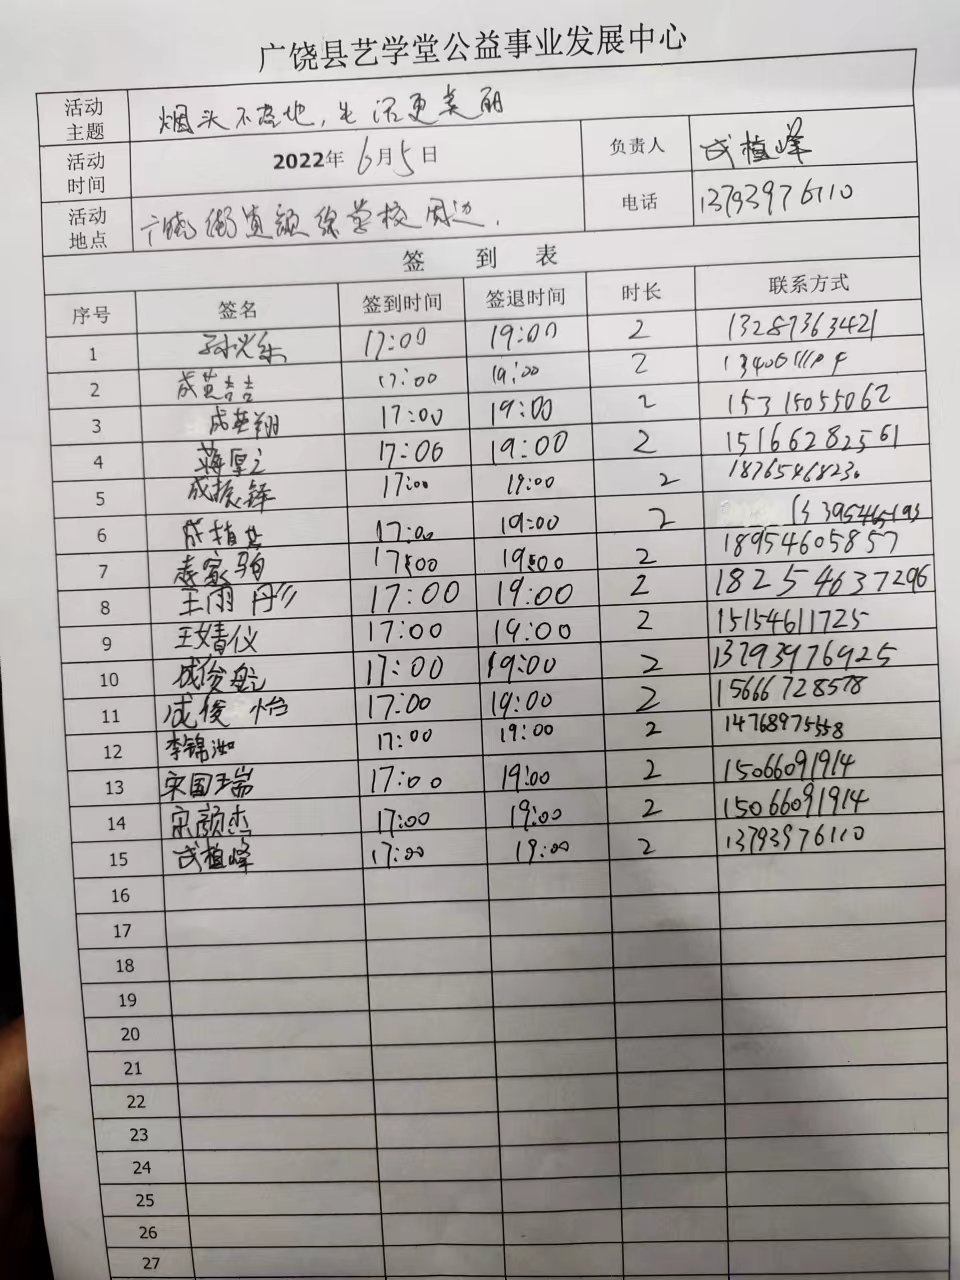 广饶县艺学堂公益事业发展中心
活动主题 烟头不落地,生活更美丽
活动时间 2022年6月5日 负责人 成植峰
活动地点 广饶街道颜徐学校周边. 电话 13793976110
签到表
序号 签名 签到时间 签退时间 时长 联系方式
1 17:00 19:00 2 13287363421
2 成英吉 17:00 19:00 2
3 成英翔 17:00 19:00 2 15315055062
4 蒋厚立 17:00 19:00 2 15166282561
5 成振锋 17:00 19:00 2 18765468230
6 17:00 19:00 2 13395465193
7 李家驹 17:00 19:00 2 18954605857
8 王雨彤 17:00 19:00 2 18254637296
9 王婧仪 17:00 19:00 2 15154611725
10 成俊乾 17:00 19:00 2 13793976925
11 成俊怡 17:00 19:00 2 15666728578
12 李锦汝 17:00 19:00 2 14768975558
13 宋国瑞 17:00 19:00 2 15066091914
14 宋颜杰 17:00 19:00 2 15066091914
15 成植峰 17:00 19:00 2 13793976110
16
17
18
19
20
21
22
23
24
25
26
27